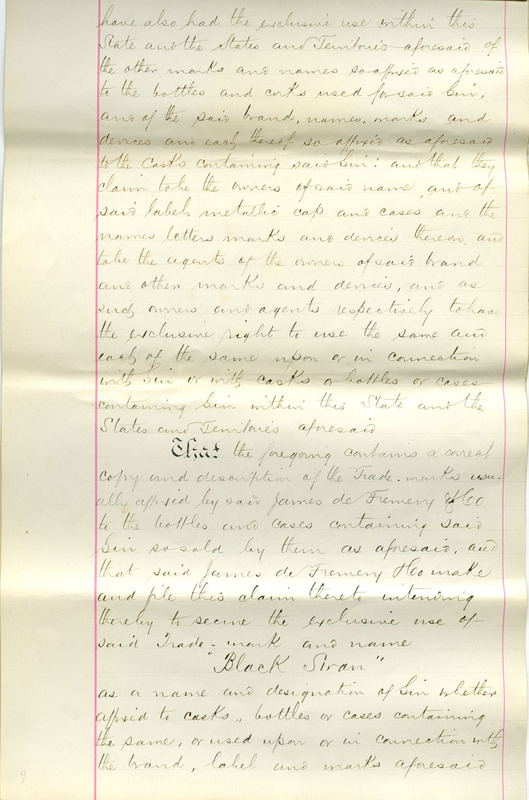 have also had the exclusive use within this
State and the States and Territories aforesaid of
the other marks and names so affixed as aforesaid
to the bottles and corks used for said Gin,
and of the said brand, names, marks and
devices and each thereof so affixed as aforesaid
to the Casks containing said Gin: and that they
claim to be the owners of said name and of
said label, metallic cap and cases and the
names letters marks and devices thereon, and
to be the agents of the owners of said brand
and other marks and devices, and as
such owners and agents respectively to have
the exclusive right to use the same and
each of the same upon or in connection
with Gin or with casks or bottles or cases
containing Gin within this State and the
States and Territories aforesaid
That the foregoing contains a correct
copy and description of the Trade-marks usu-
ally affixed by said James de Fremery & Co
to the bottles and cases containing said
Gin so sold by them as aforesaid, and
that said James de Fremery & Co make
and file this claim thereto intending
thereby to secure the exclusive use of
said Trade-mark and name
"Black Swan"
as a name and designation of Gin whether
affixed to casks, bottles or cases containing
the same, or used upon or in connection with
the brand, label and marks aforesaid
9